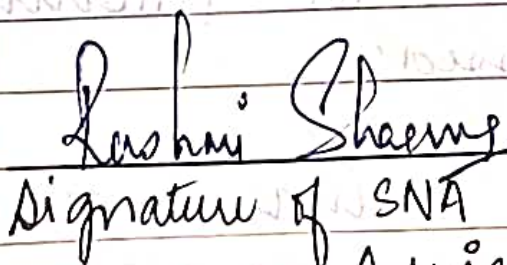 Rashmi Sharma
Signature of SNA